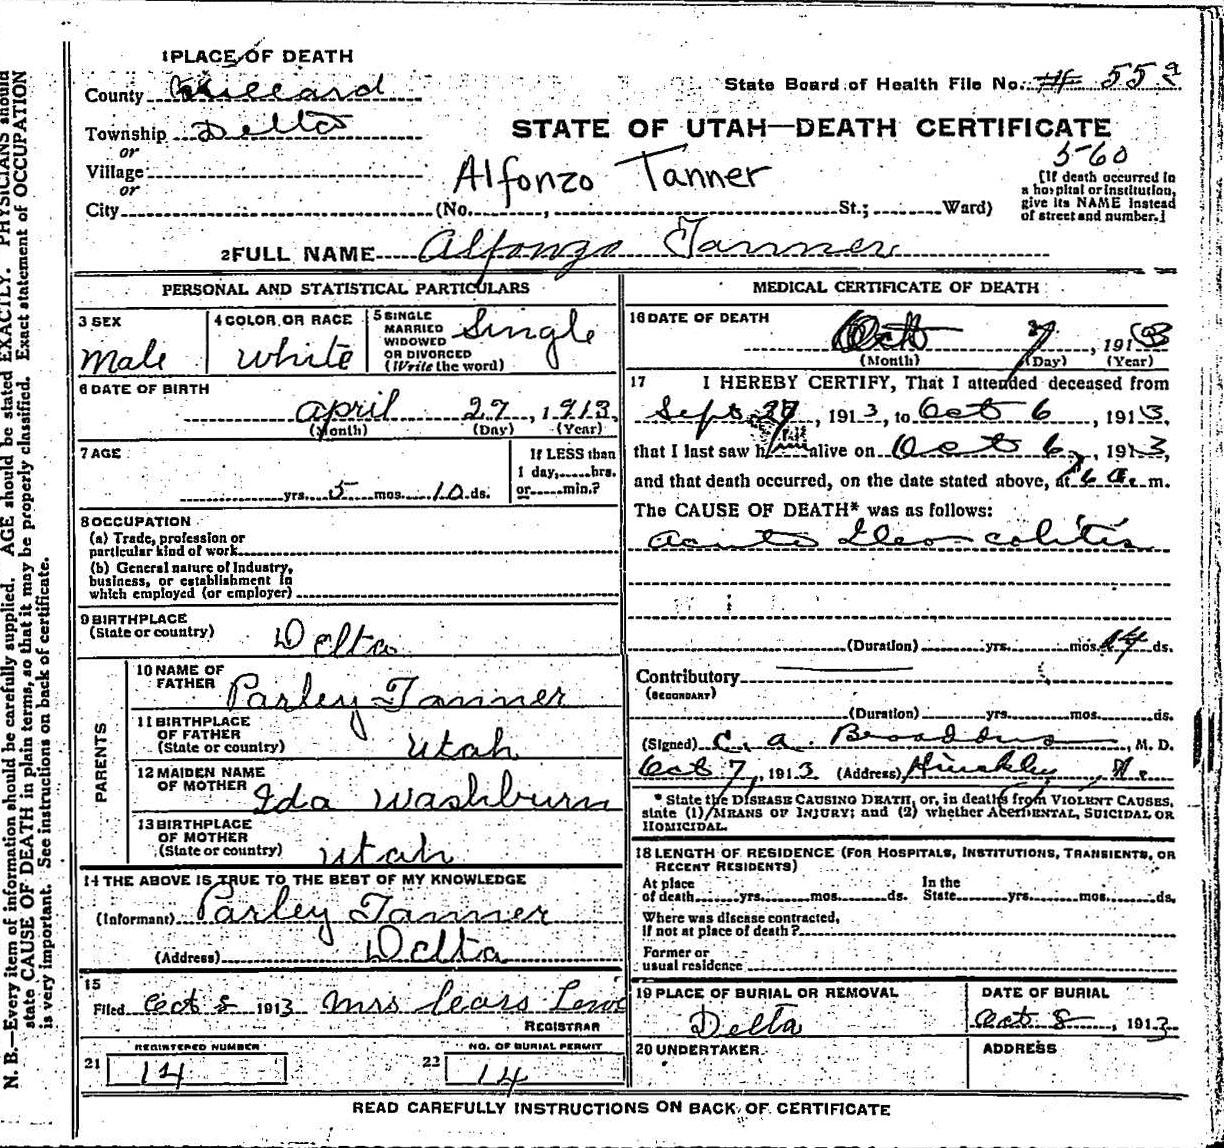 1 PLACE OF DEATH
County Millard
State Board of Health File No. 55
Township Delta
or
STATE OF UTAH—DEATH CERTIFICATE
5-60
Village
or
Alfonzo Tanner
[If death occurred in
a hospital or institution,
give its NAME instead
of street and number.]
City (No. , St.; Ward)
2 FULL NAME Alfonzo Tanner
PERSONAL AND STATISTICAL PARTICULARS
3 SEX
Male
4 COLOR OR RACE
White
5 SINGLE
MARRIED
WIDOWED
OR DIVORCED
(Write the word)
Single
6 DATE OF BIRTH
April 27, 1913,
(Month) (Day) (Year)
7 AGE
yrs. 5 mos. 10 ds.
If LESS than
1 day, hrs.
or min.?
8 OCCUPATION
(a) Trade, profession or
particular kind of work
(b) General nature of Industry,
business, or establishment in
which employed (or employer)
9 BIRTHPLACE
(State or country) Delta
PARENTS
10 NAME OF
FATHER Parley Tanner
11 BIRTHPLACE
OF FATHER
(State or country) Utah
12 MAIDEN NAME
OF MOTHER Ida Washburn
13 BIRTHPLACE
OF MOTHER
(State or country) Utah
14 THE ABOVE IS TRUE TO THE BEST OF MY KNOWLEDGE
(Informant) Parley Tanner
(Address) Delta
15
Filed Oct 8 1913 Mrs
REGISTRAR
REGISTERED NUMBER
21 14
NO. OF BURIAL PERMIT
22 14
MEDICAL CERTIFICATE OF DEATH
16 DATE OF DEATH
Oct 7, 1913
(Month) (Day) (Year)
17 I HEREBY CERTIFY, That I attended deceased from
Sept , 1913, to Oct 6, 1913,
that I last saw him alive on Oct 6, 1913,
and that death occurred, on the date stated above, at 6 a. m.
The CAUSE OF DEATH* was as follows:
Acute Ileo-colitis
(Duration) yrs. mos. 14 ds.
Contributory
(SECONDARY)
(Duration) yrs. mos. ds.
(Signed) C. A. Broaddus, M. D.
Oct 7, 1913 (Address) Hinckley,
* State the DISEASE CAUSING DEATH, or, in deaths from VIOLENT CAUSES,
state (1) MEANS OF INJURY; and (2) whether ACCIDENTAL, SUICIDAL OR
HOMICIDAL.
18 LENGTH OF RESIDENCE (FOR HOSPITALS, INSTITUTIONS, TRANSIENTS, OR
RECENT RESIDENTS)
At place
of death yrs. mos. ds.
In the
State yrs. mos. ds.
Where was disease contracted,
if not at place of death?
Former or
usual residence
19 PLACE OF BURIAL OR REMOVAL
Delta
DATE OF BURIAL
Oct 8, 1913
20 UNDERTAKER
ADDRESS
READ CAREFULLY INSTRUCTIONS ON BACK OF CERTIFICATE
N. B.—Every item of information should be carefully supplied. AGE should be stated EXACTLY. PHYSICIANS should
state CAUSE OF DEATH in plain terms, so that it may be properly classified. Exact statement of OCCUPATION
is very important. See instructions on back of certificate.